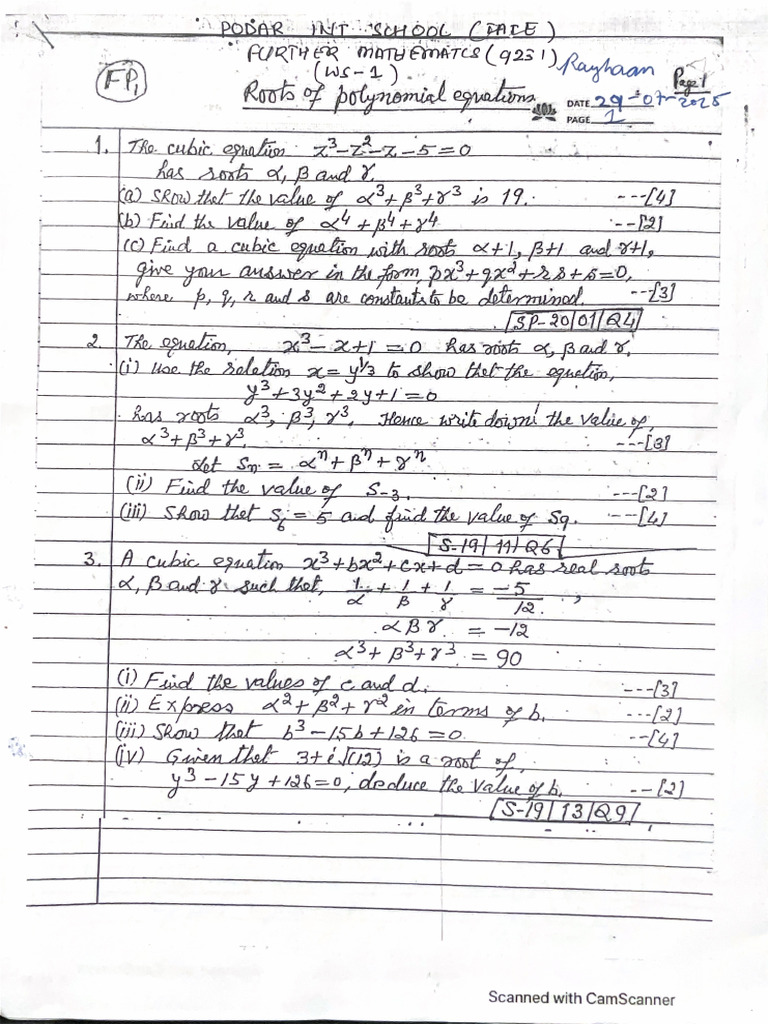 PODAR INT SCHOOL (CAIE)
FURTHER MATHEMATICS (9231)
(WS-1)
Rayhaan
FP1
Page 1
Roots of polynomial equations
DATE 29-07-2025
PAGE 1
1. The cubic equation z³-z²-z-5=0
has roots α, β and γ.
(a) Show that the value of α³+β³+γ³ is 19. ---[4]
(b) Find the value of α⁴+β⁴+γ⁴ --[2]
(c) Find a cubic equation with roots α+1, β+1 and γ+1,
give your answer in the form, px³+qx²+rx+s=0,
where p, q, r and s are constants to be determined. --[3]
SP-20/01/Q4
2. The equation, x³-x+1=0 has roots α, β and γ.
(i) Use the relation x=y^1/3 to show that the equation,
y³+3y²+2y+1=0
has roots α³, β³, γ³. Hence write down the value of,
α³+β³+γ³. ---[3]
Let Sn = αⁿ+βⁿ+γⁿ
(ii) Find the value of S-3. ---[2]
(iii) Show that S6=5 and find the value of S9. ---[4]
S-19/11/Q6
3. A cubic equation x³+bx²+cx+d=0 has real roots
α, β and γ such that, 1/α + 1/β + 1/γ = -5/12,
αβγ = -12
α³+β³+γ³ = 90
(i) Find the values of c and d. ---[3]
(ii) Express α²+β²+γ² in terms of b. ---[2]
(iii) Show that b³-15b+126=0. --[4]
(iv) Given that 3+i√(12) is a root of,
y³-15y+126=0, deduce the value of b. --[2]
S-19/13/Q9
Scanned with CamScanner